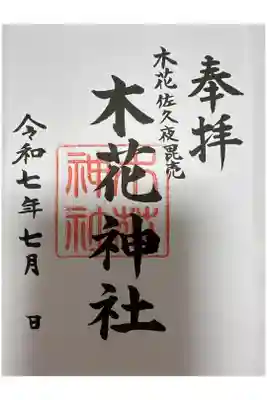 奉拝
木花佐久夜毘売
木花神社
令和七年七月　日
木花
神社